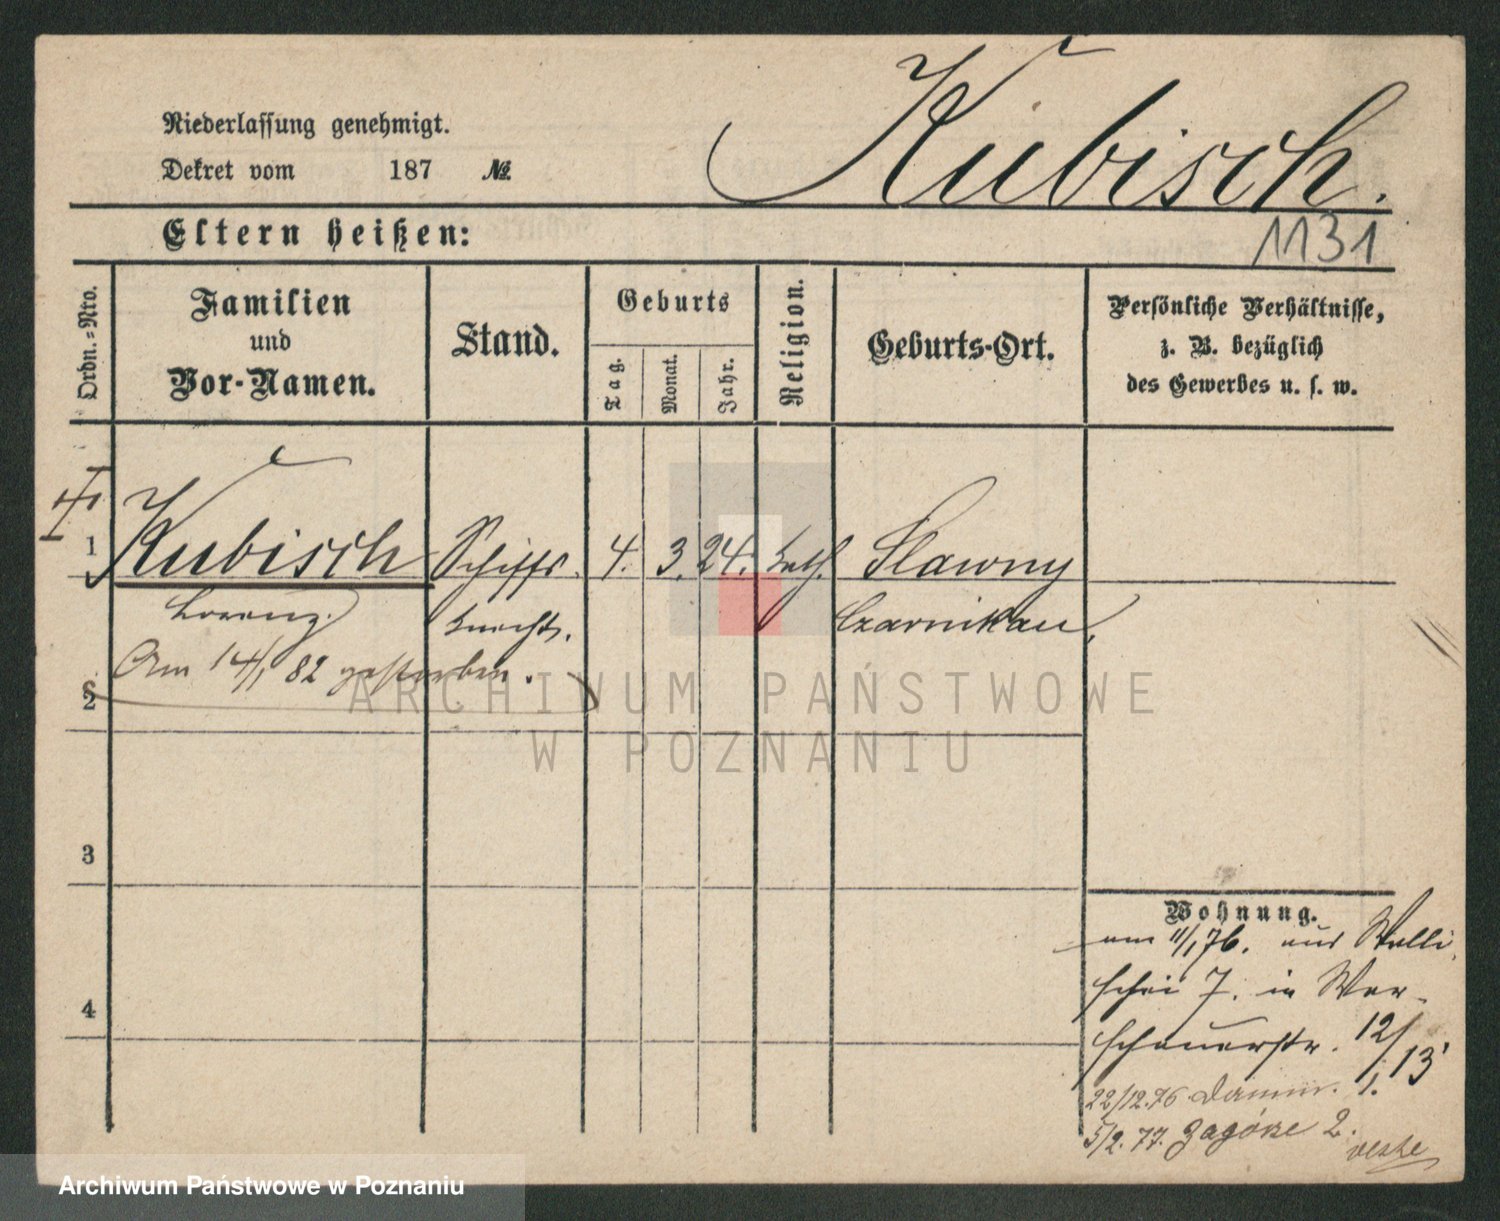 Kubisch.
Niederlassung genehmigt.
Dekret vom 187 №
Eltern heißen:
1131
Ordn.-Nro.
Familien
und
Vor-Namen.
Stand.
Geburts
Tag.
Monat.
Jahr.
Religion.
Geburts-Ort.
Persönliche Verhältnisse,
z. B. bezüglich
des Gewerbes u. s. w.
1 Kubisch Schiffs 4. 3. 24. kath. Slawny
Lorenz. knecht. Czarnikau.
Am 14/1 82 gestorben.
2
3
4
Wohnung.
am 11/1 76. aus Walli
schei 7. in War-
schauerstr. 12/13
22/12.76 Damm. 1.
5/2.77. Zagórze 2.
ARCHIWUM PAŃSTWOWE
W POZNANIU
Archiwum Państwowe w Poznaniu